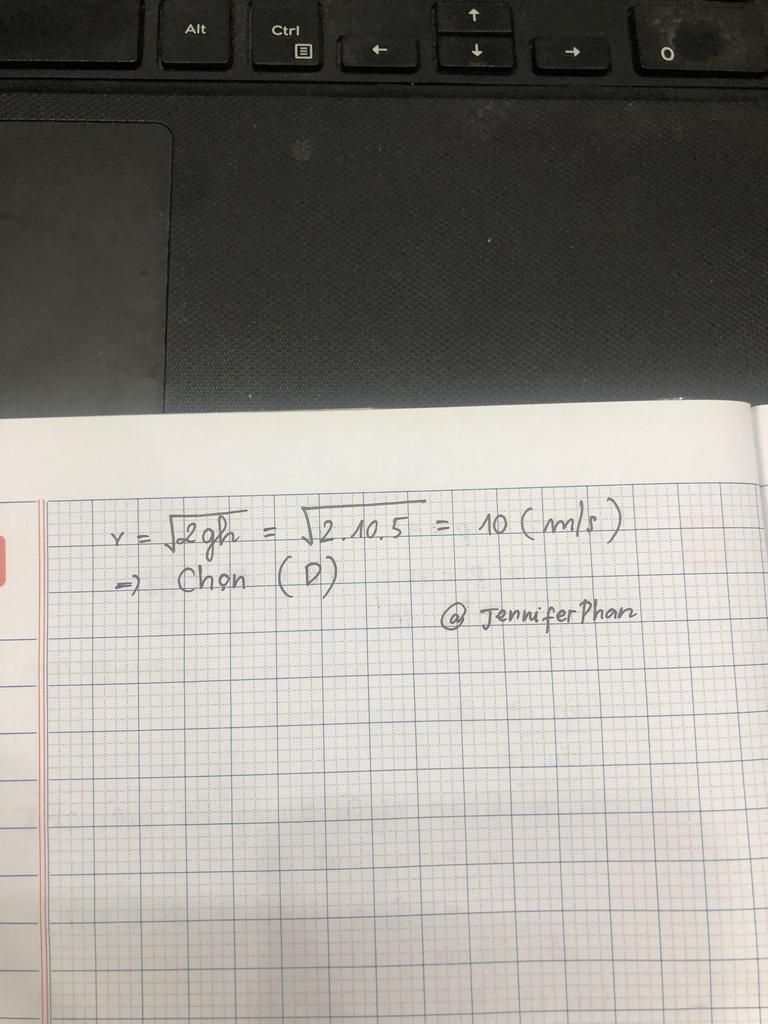 Alt
Ctrl
↑
←
↓
→
0
v = √2gh = √2.10.5 = 10 (m/s)
=> Chọn (D)
@ JenniferPhan